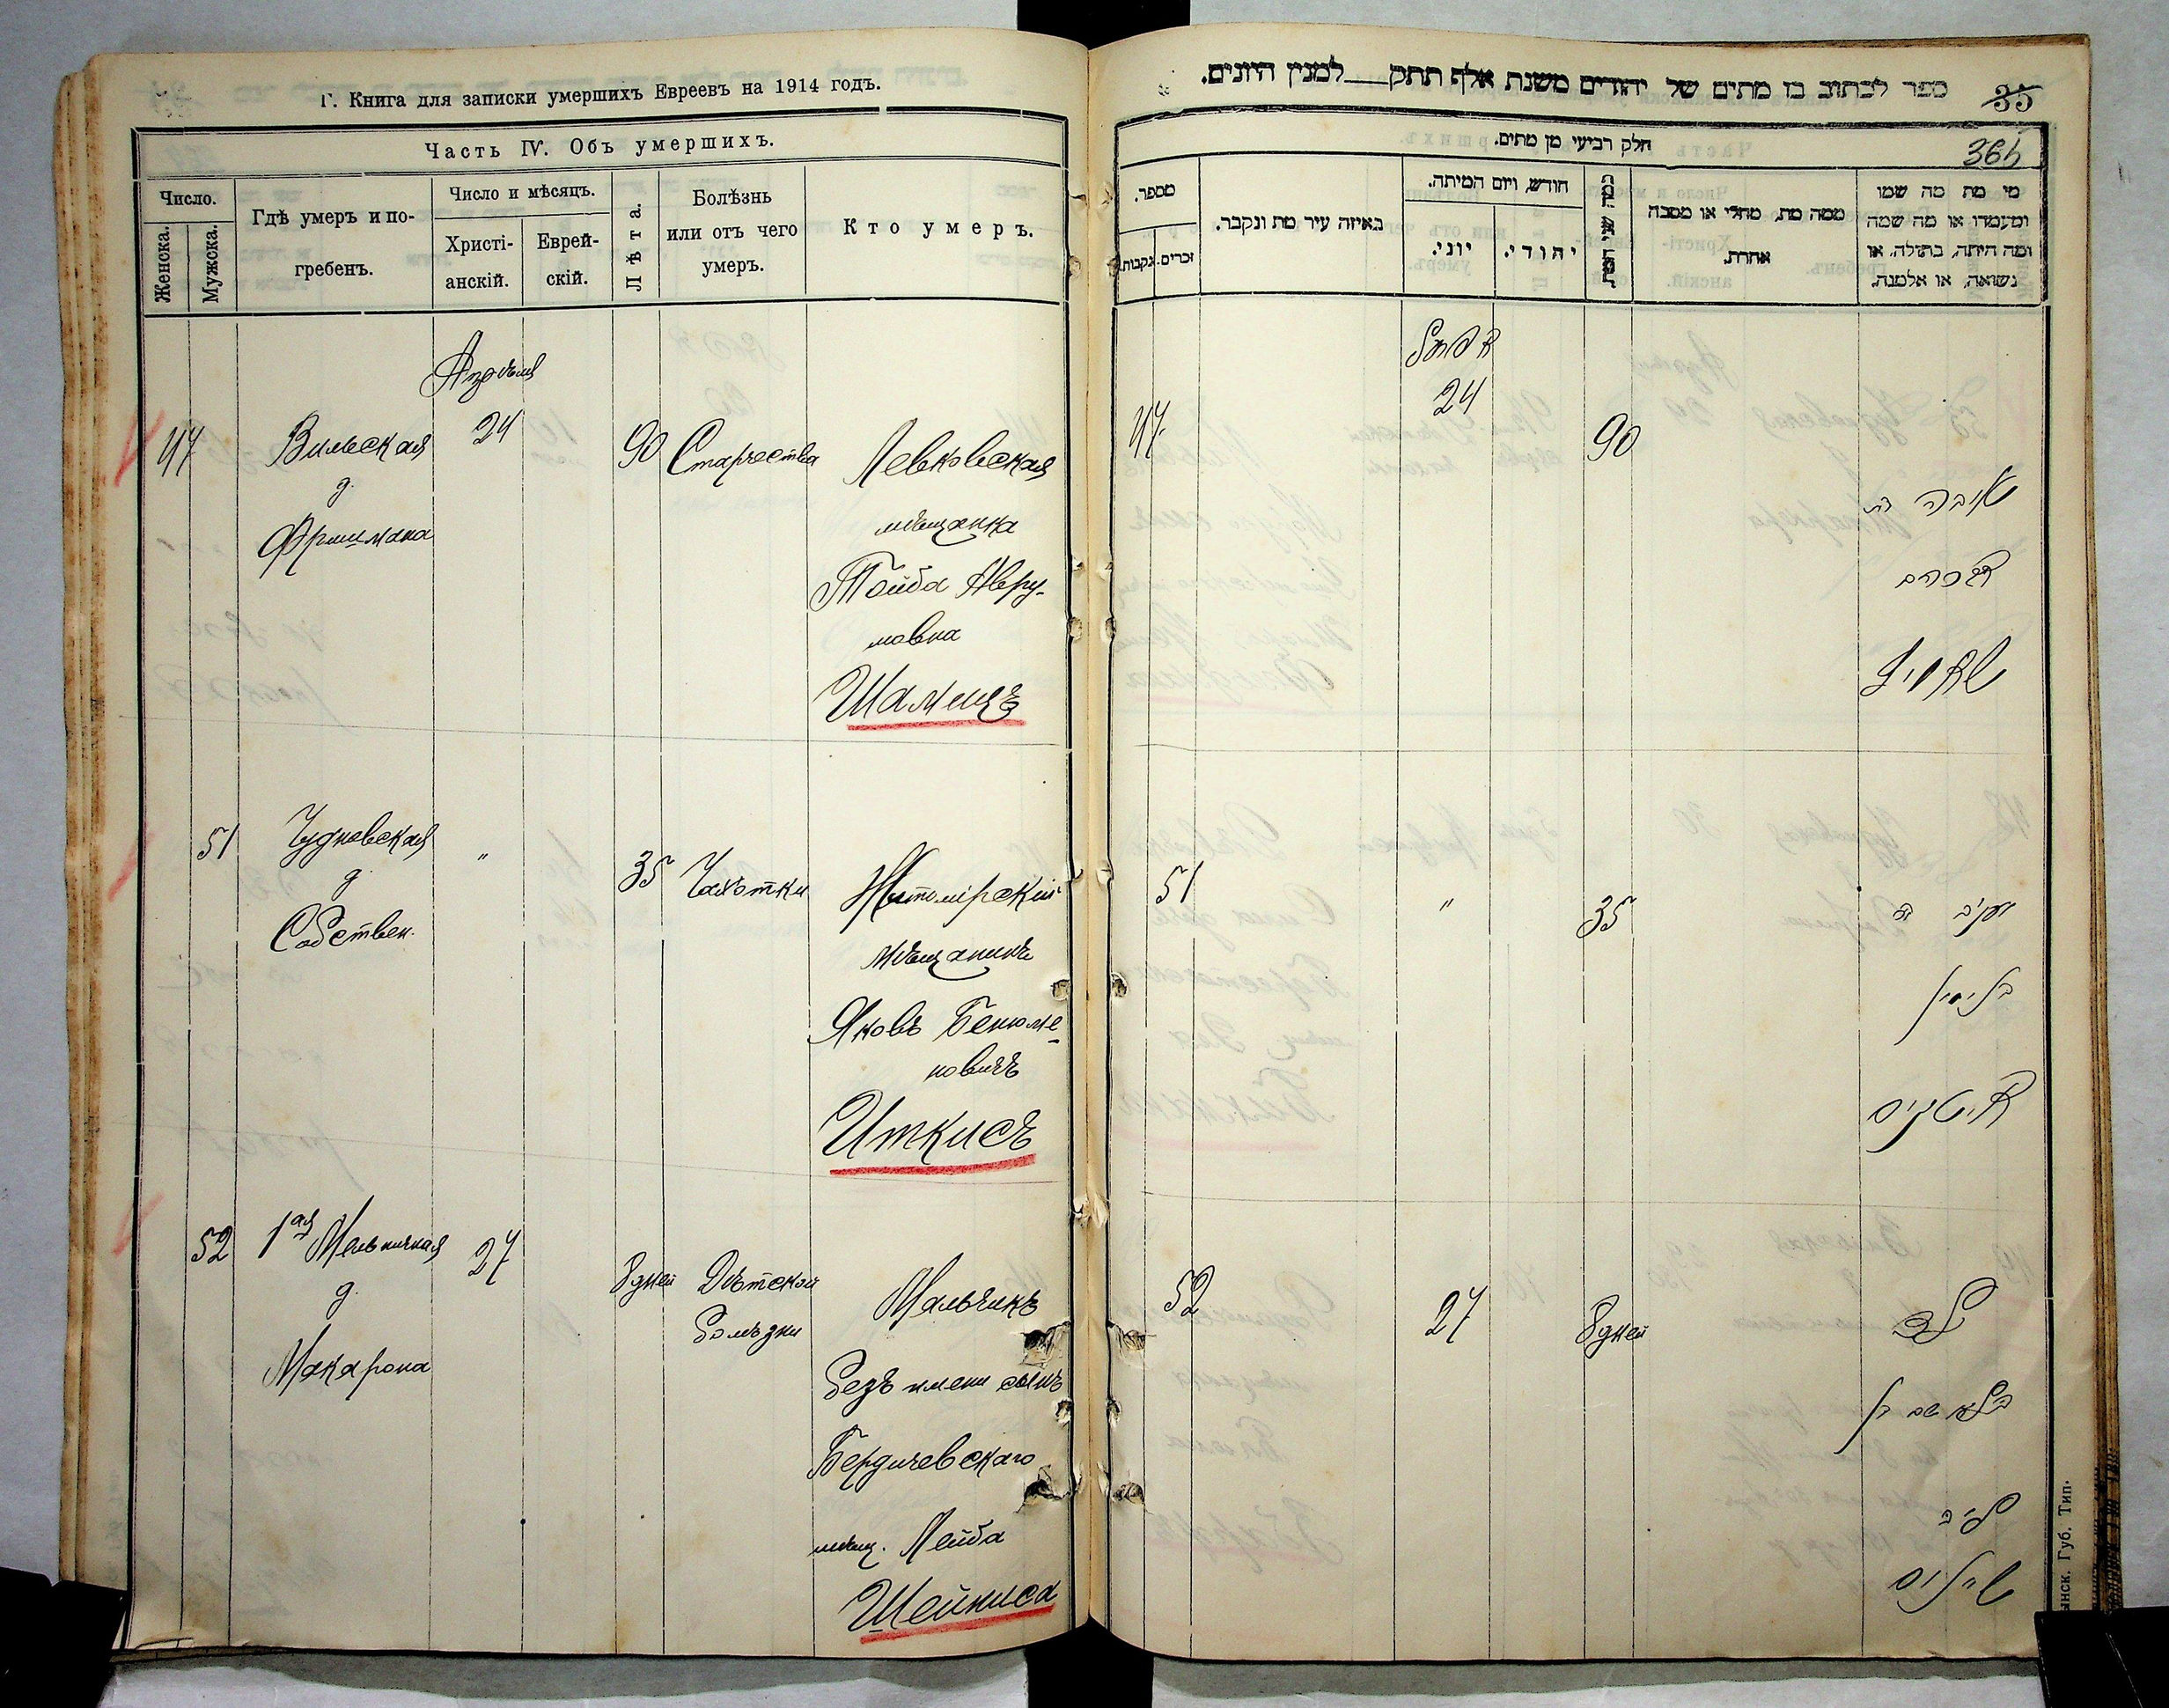 Г. Книга для записки умершихъ Евреевъ на 1914 годъ.
Часть IV. Объ умершихъ.
Число.
Женска.
Мужска.
Гдѣ умеръ и по-
гребенъ.
Число и мѣсяцъ.
Христі-
анскій.
Еврей-
скій.
Лѣта.
Болѣзнь
или отъ чего
умеръ.
Кто умеръ.
Апрѣля
47
Вильская
д.
Фришмана
24
90
Старчества
Левковская
мѣщанка
Тойба Авру-
мовна
Шамецъ
51
Чудновская
д.
Собствен.
"
35
Чахотки
Житомірскій
мѣщанинъ
Яковъ Бенюме-
новичъ
Иткисъ
52
1ая Мельничная
д.
Макарона
27
8 дней
Дѣтской
болѣзни
Мальчикъ
безъ имени сынъ
Бердичевскаго
мѣщ. Лейба
Шейниса
ספר לכתוב בו מתים של יהודים משנת אלף תתק למנין היונים.
35
חלק רביעי מן מתים.
364
מספר.
נקבות.
זכרים.
באיזה עיר מת ונקבר.
חודש, ויום המיתה.
יוני.
יהודי.
כמה שני המת
ממה מת, מחלי או מסבה
אחרת.
מי מת מה שמו
ומעמדו או מה שמה
ומה היתה, בתולה, או
נשואה, או אלמנה.
אפריל
24
47.
90
טויבה בת
אברהם
51
"
35
יעקב בן
בנימין
איטקיס
52
27
8 дней
ילד
בלא שם בן
לייב
שייניס
ынск. Губ. Тип.